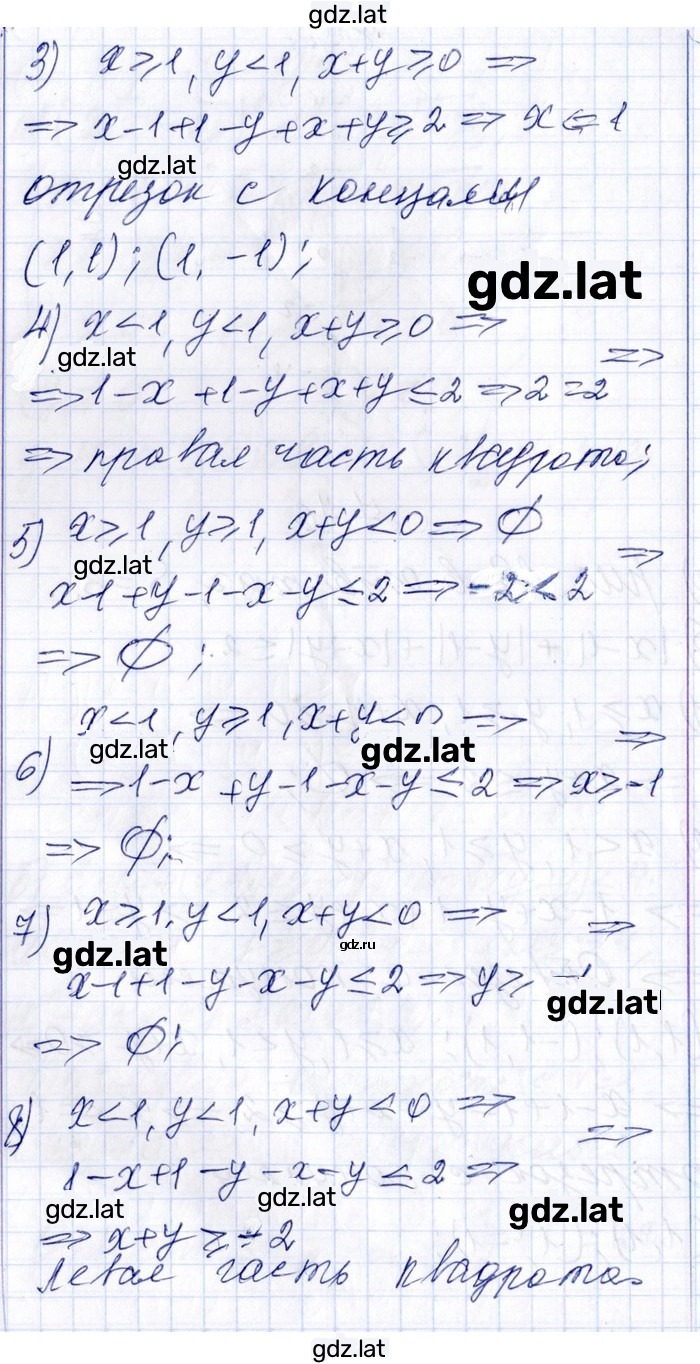 gdz.lat
3) x⩾1, y<1, x+y⩾0 =>
=> x-1+1-y+x+y⩾2 => x ⩽ 1
gdz.lat
отрезок с концами
(1,1); (1, -1);
gdz.lat
4) x<1, y<1, x+y⩾0 =>
gdz.lat
=>
=> 1-x+1-y+x+y≤2 => 2=2
=> правая часть квадрата;
5) x⩾1, y⩾1, x+y<0 => ∅
gdz.lat
=>
x-1+y-1-x-y≤2 => -2<2
=> ∅;
6) x<1, y⩾1, x+y<0 =>
gdz.lat
gdz.lat
=>
=> 1-x+y-1-x-y≤2 => x⩾-1
=> ∅;
7) x⩾1, y<1, x+y<0 =>
gdz.lat
gdz.ru
=>
x-1+1-y-x-y≤2 => y⩾-1
gdz.lat
=> ∅;
8) x<1, y<1, x+y<0 =>
=>
1-x+1-y-x-y≤2 =>
gdz.lat
gdz.lat
gdz.lat
=> x+y⩾-2
Левая часть квадрата.
gdz.lat